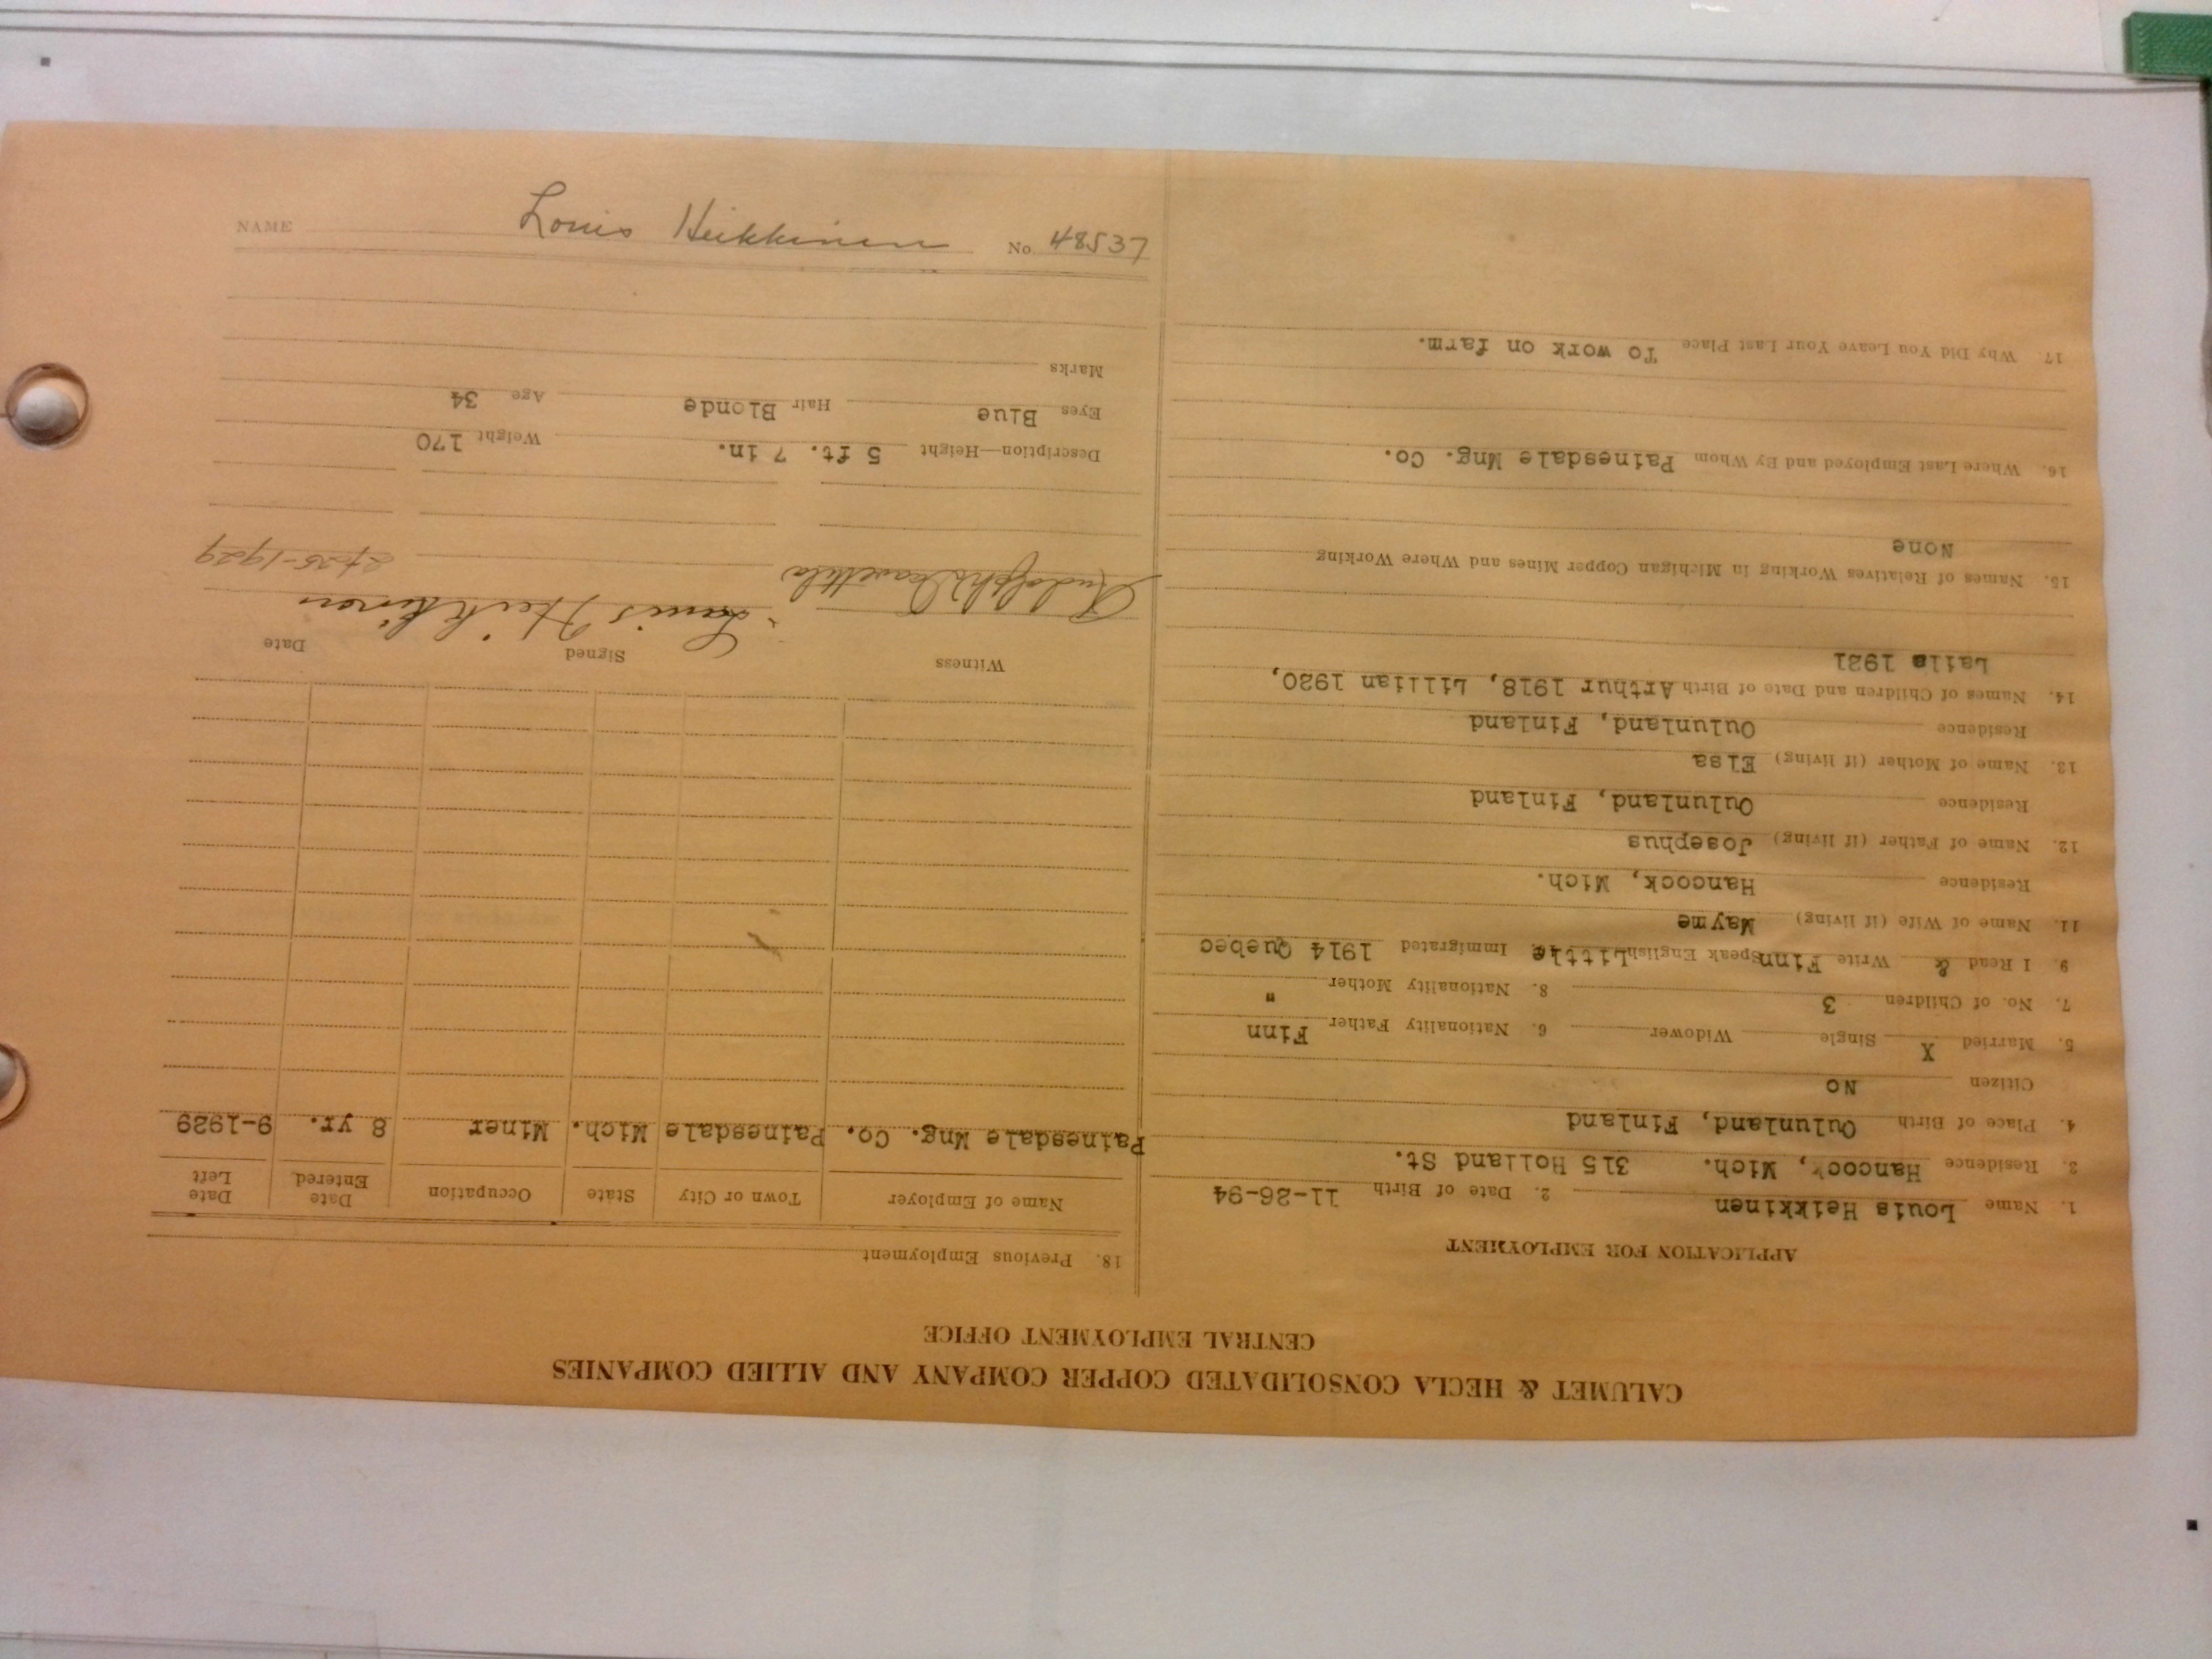 CALUMET & HECLA CONSOLIDATED COPPER COMPANY AND ALLIED COMPANIES
CENTRAL EMPLOYMENT OFFICE
APPLICATION FOR EMPLOYMENT
1. Name Louis Heikkinen 2. Date of Birth 11-26-94
3. Residence Hancock, Mich. 315 Holland St.
4. Place of Birth Oulunland, Finland
Citizen No
5. Married X Single Widower 6. Nationality Father Finn
7. No. of Children 3 8. Nationality Mother "
9. I Read & Write Finn Speak English Little Immigrated 1914 Quebec
11. Name of Wife (if living) Mayme
Residence Hancock, Mich.
12. Name of Father (if living) Josephus
Residence Oulunland, Finland
13. Name of Mother (if living) Elsa
Residence Oulunland, Finland
14. Names of Children and Date of Birth Arthur 1918, Lillian 1920,
Laila 1921
15. Names of Relatives Working in Michigan Copper Mines and Where Working
None
16. Where Last Employed and By Whom Painesdale Mng. Co.
17. Why Did You Leave Your Last Place To work on farm.
18. Previous Employment
Name of Employer Town or City State Occupation Date Entered Date Left
Painesdale Mng. Co. Painesdale Mich. Miner 8 yr. 9-1929
Witness Signed Date
Rudolph Louis Heikkinen 25-1929
Description—Height 5 ft. 7 in. Weight 170
Eyes Blue Hair Blonde Age 34
Marks
NAME Louis Heikkinen No 48537